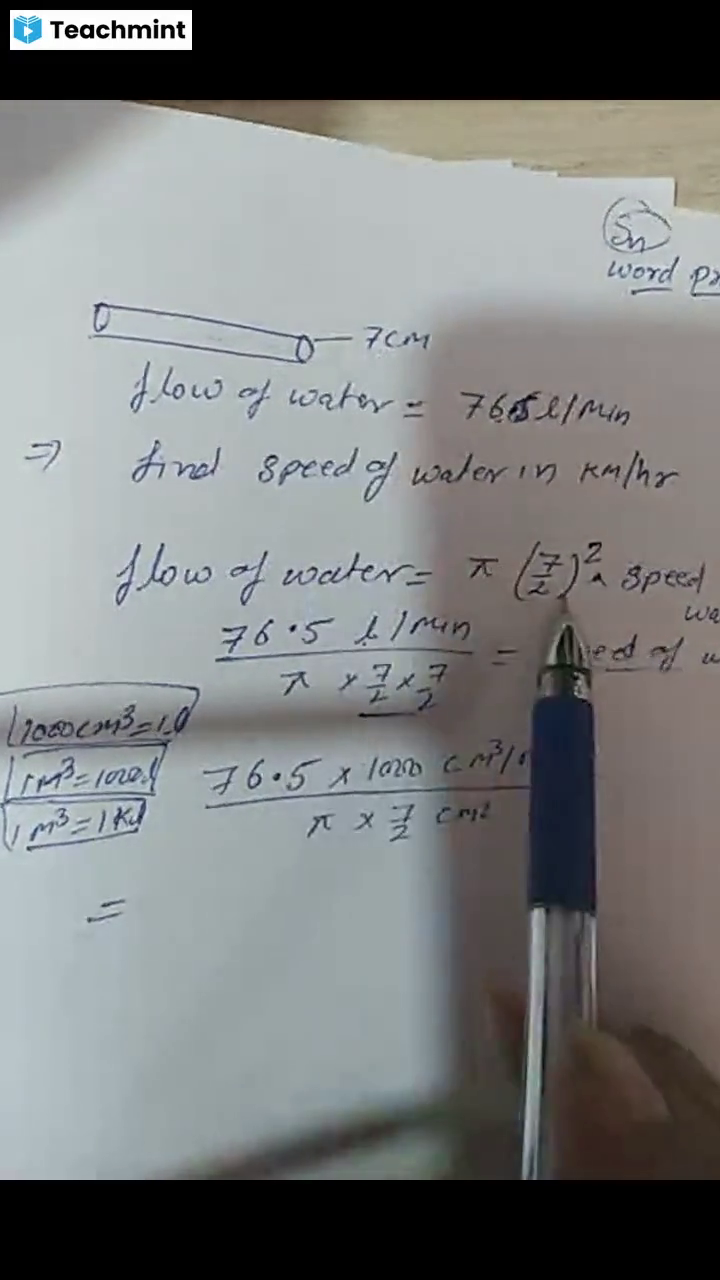 Teachmint
Sn
word pr
7cm
flow of water = 76.5 l/min
⇒ find speed of water in km/hr
flow of water = π (7/2)² × speed
wa
76.5 l/min / π × 7/2 × 7/2 = eed of w
1000cm³=1l
1m³=1000l
1m³=1Kl
76.5 × 1000 cm³/ / π × 7/2 cm²
=